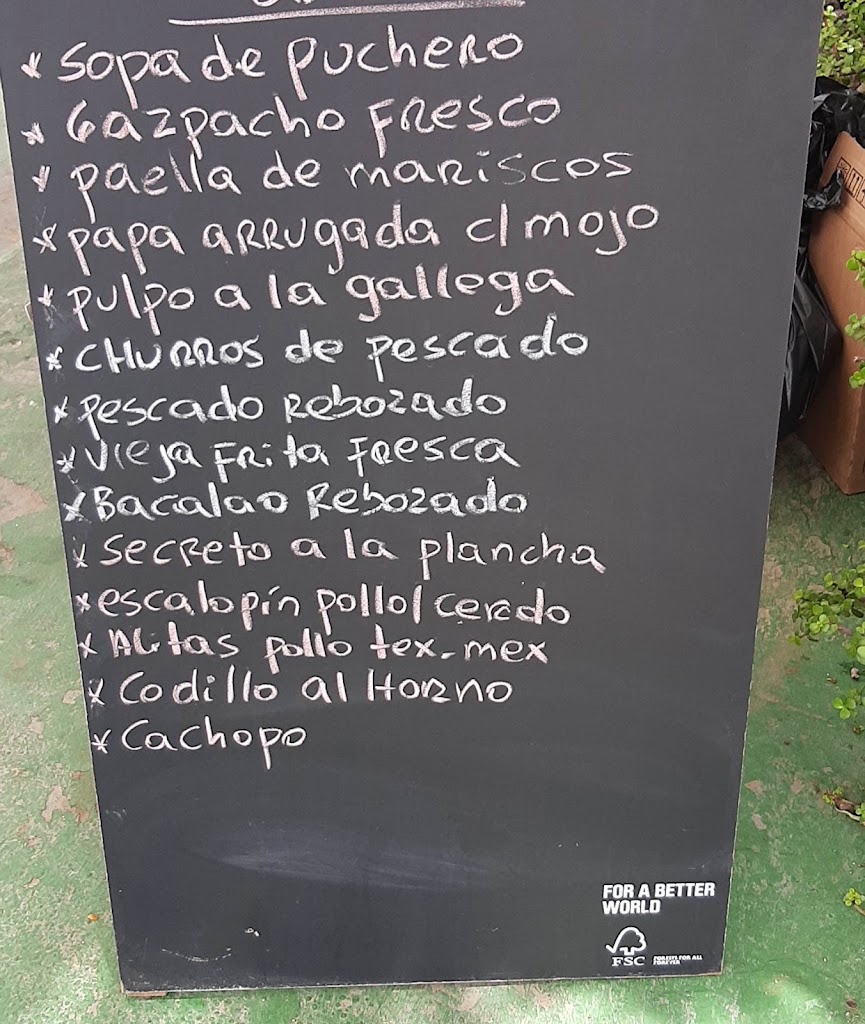 * sopa de puchero
* Gazpacho FResco
* paella de maRiscos
* papa aRRugada c/ mojo
* pulpo a la gallega
* CHURROS de pescado
* pescado Rebozado
* Vieja FRita FResca
* Bacalao Rebozado
* secReto a la plancha
* escalopín pollo/ceRdo
* Alitas pollo tex-mex
* Codillo al HoRno
* Cachopo
FOR A BETTER
WORLD
FSC
FORESTS FOR ALL
FOREVER